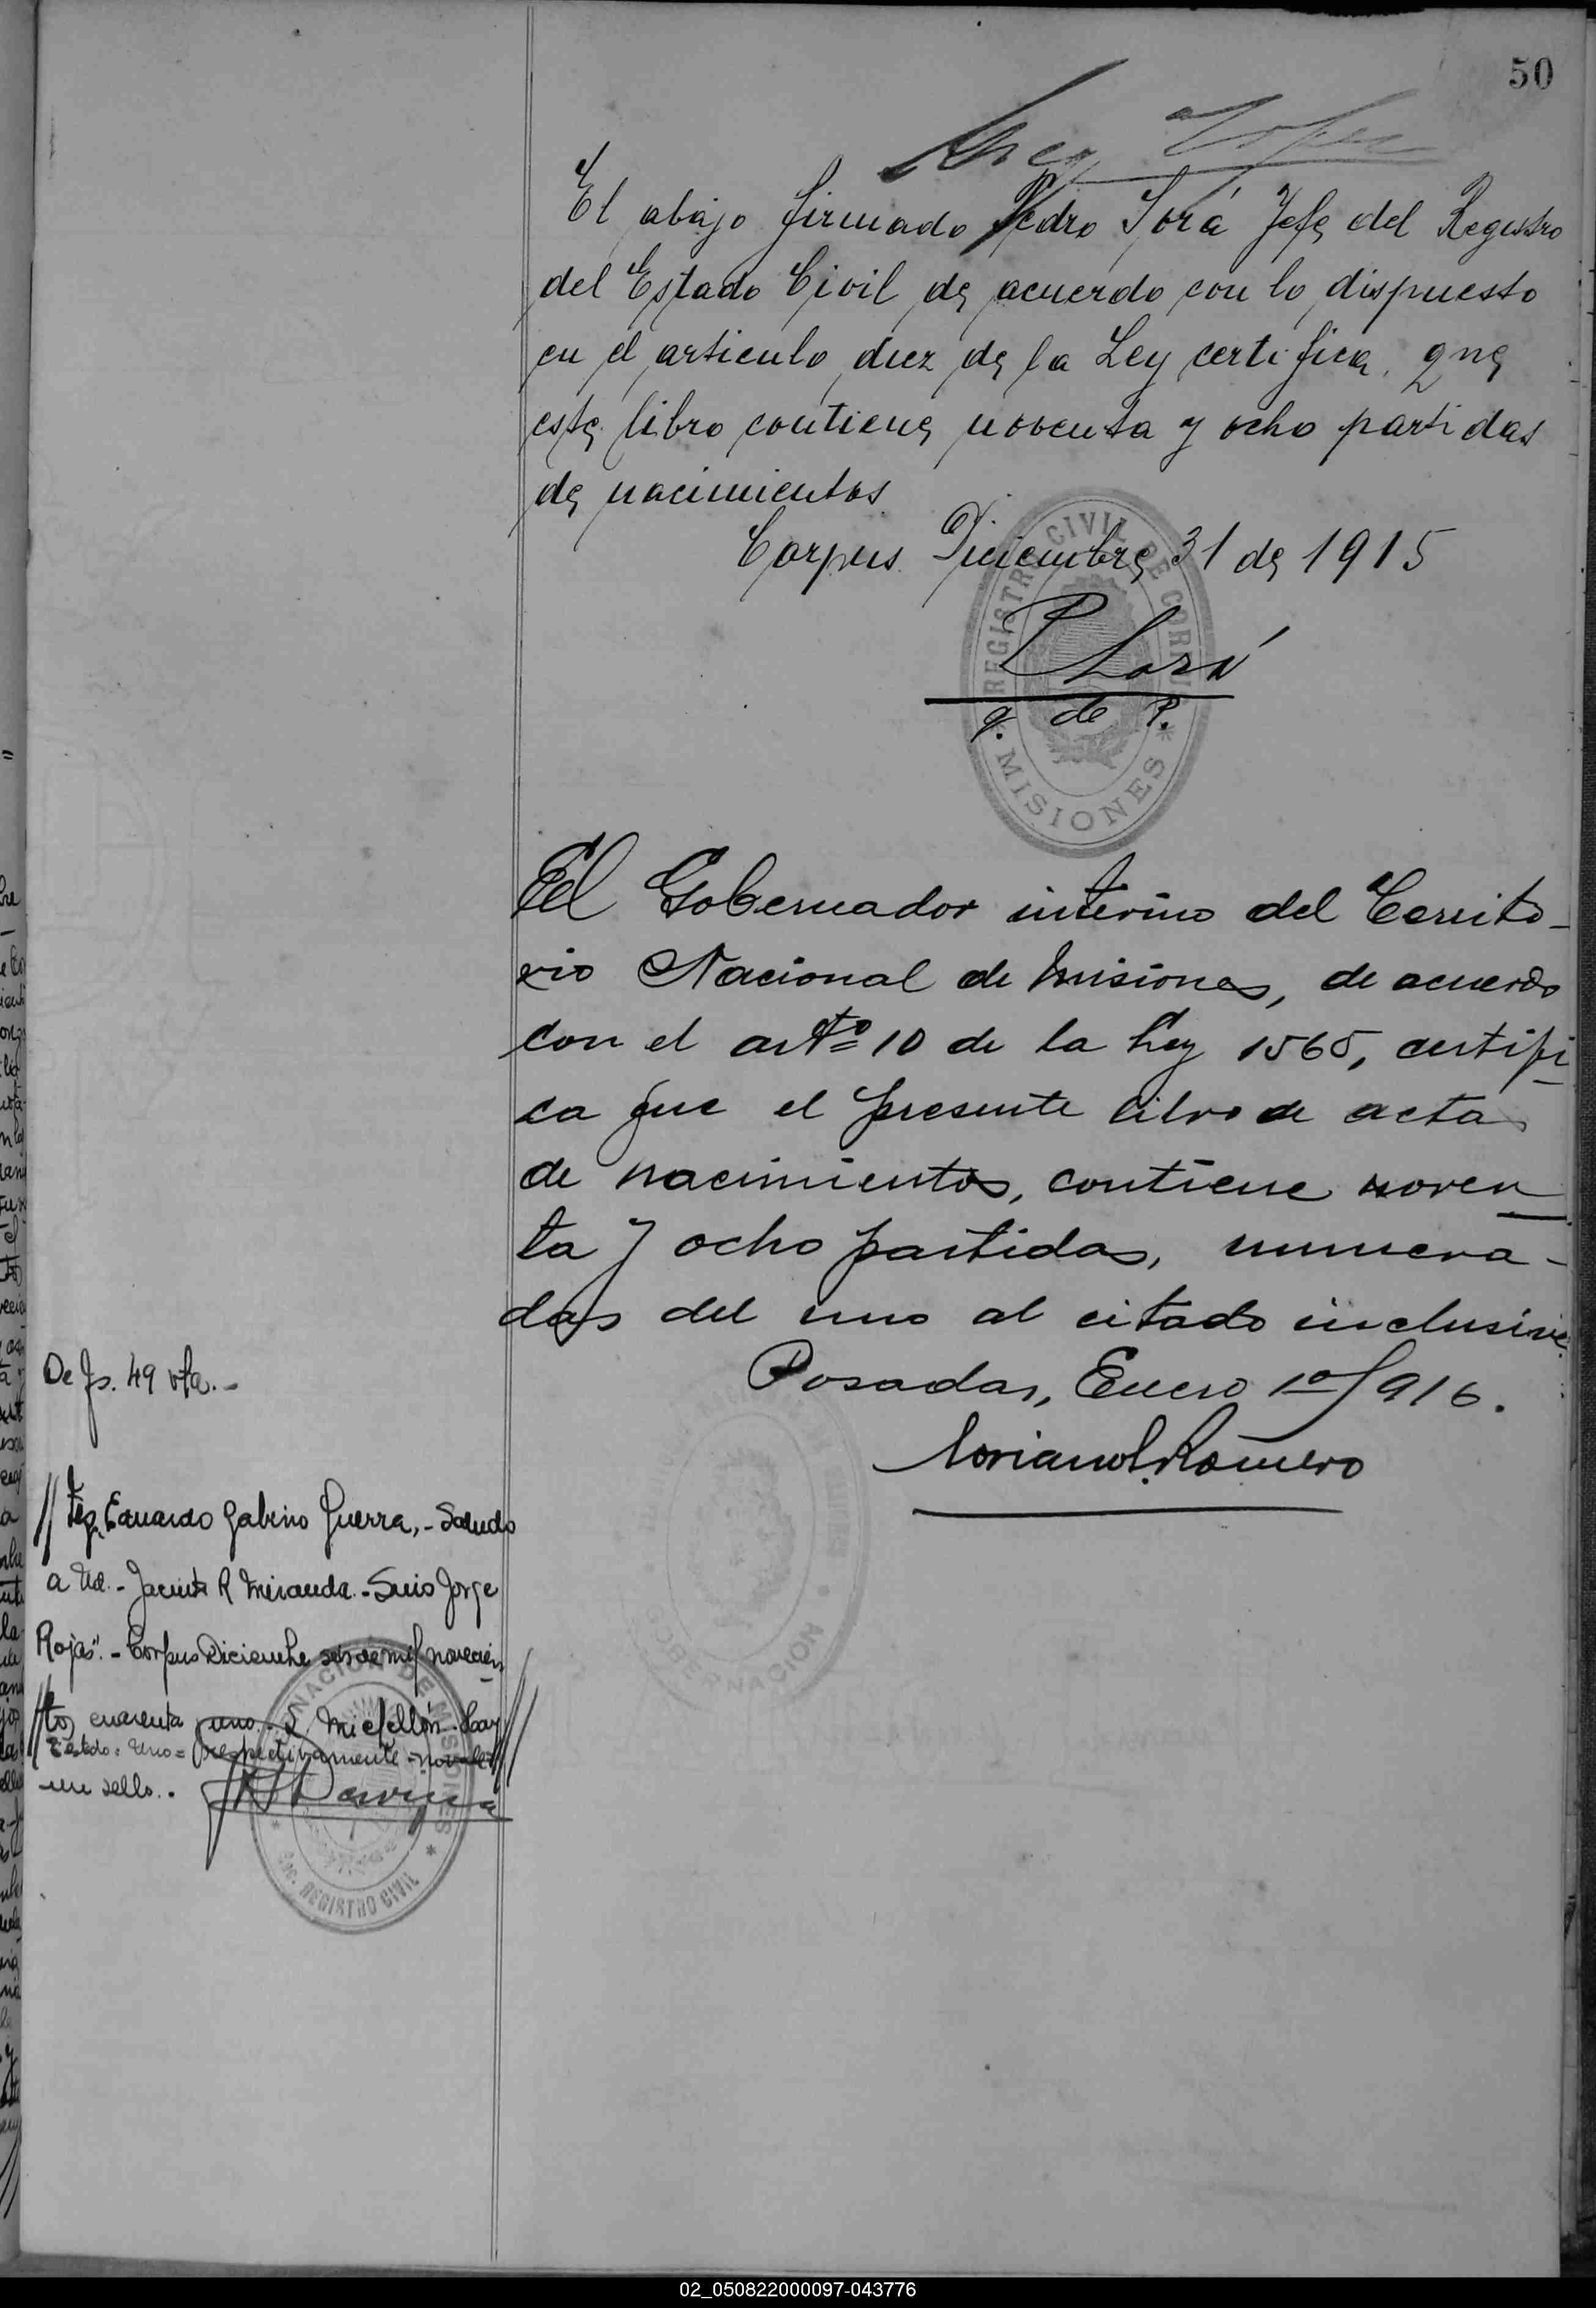 50
El abajo firmado Pedro Sorá Jefe del Registro
del Estado Civil de acuerdo con lo dispuesto
en el articulo diez de la Ley certifica, que
este libro contiene noventa y ocho partidas
de nacimientos
Corpus Diciembre 31 de 1915
P Sorá
J. de P.
REGISTRO CIVIL DE CORPUS
* MISIONES *
El Gobernador interino del Territo-
rio Nacional de Misiones, de acuerdo
con el artº 10 de la Ley 1565, certifi
ca que el presente libro de actas
de nacimientos, contiene noven
ta y ocho partidas, numera-
das del uno al citado inclusive.
Posadas, Enero 1º/916.
Romero
GOBERNACION
De fs. 49 vta.-
Eduardo Gabino Guerra,- Saludo
a Ud.- Jacinto R Miranda.- Luis Jorge
Rojas".- Corpus Diciembre seis de mil novecien
tos cuarenta y uno.- Hay
Testado: Uno = respectivamente = no vale
un sello..
GOBERNACION DE MISIONES
* SEC. REGISTRO CIVIL *
02_050822000097-043776